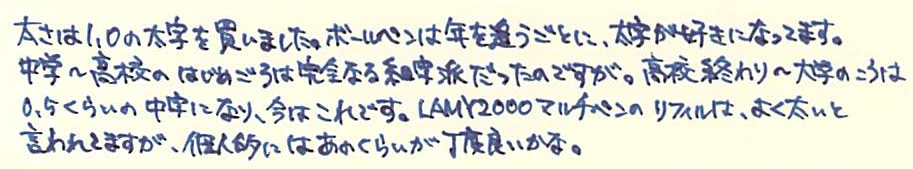 太さは1,0の太字を買いました。ボールペンは年を追うごとに、太字が好きになってます。
中学～高校のはじめごろは完全なる細字派だったのですが。高校終わり～大学のころは
0,5くらいの中字になり、今はこれです。LAMY2000マルチペンのリフィルは、よく太いと
言われてますが、個人的にはあのくらいが丁度良いかな。